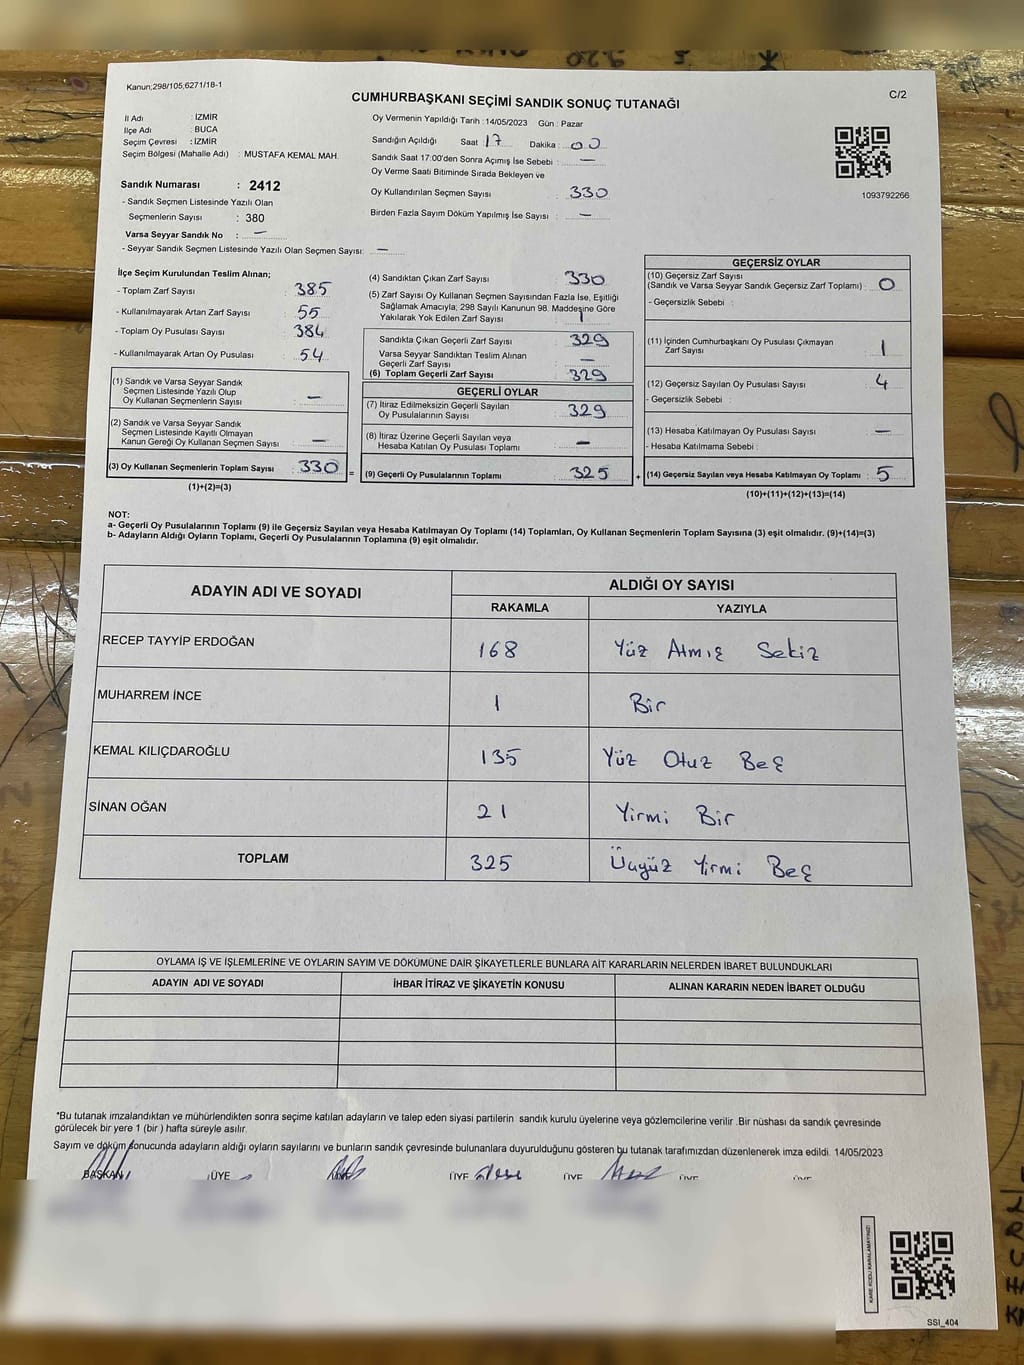 Kanun;298/105;6271/18-1
C/2
CUMHURBAŞKANI SEÇİMİ SANDIK SONUÇ TUTANAĞI
İl Adı : İZMİR
İlçe Adı : BUCA
Seçim Çevresi : İZMİR
Seçim Bölgesi (Mahalle Adı) : MUSTAFA KEMAL MAH.
Sandık Numarası : 2412
- Sandık Seçmen Listesinde Yazılı Olan
Seçmenlerin Sayısı : 380
Varsa Seyyar Sandık No : —
- Seyyar Sandık Seçmen Listesinde Yazılı Olan Seçmen Sayısı: —
Oy Vermenin Yapıldığı Tarih : 14/05/2023 Gün : Pazar
Sandığın Açıldığı Saat 17 Dakika : 00
Sandık Saat 17:00'den Sonra Açımış İse Sebebi : —
Oy Verme Saati Bitiminde Sırada Bekleyen ve
Oy Kullandırılan Seçmen Sayısı : 330
Birden Fazla Sayım Döküm Yapılmış İse Sayısı : —
1093792266
İlçe Seçim Kurulundan Teslim Alınan;
- Toplam Zarf Sayısı : 385
- Kullanılmayarak Artan Zarf Sayısı : 55
- Toplam Oy Pusulası Sayısı : 384
- Kullanılmayarak Artan Oy Pusulası : 54
(1) Sandık ve Varsa Seyyar Sandık
Seçmen Listesinde Yazılı Olup
Oy Kullanan Seçmenlerin Sayısı : —
(2) Sandık ve Varsa Seyyar Sandık
Seçmen Listesinde Kayıtlı Olmayan
Kanun Gereği Oy Kullanan Seçmen Sayısı : —
(3) Oy Kullanan Seçmenlerin Toplam Sayısı : 330 =
(1)+(2)=(3)
(4) Sandıktan Çıkan Zarf Sayısı : 330
(5) Zarf Sayısı Oy Kullanan Seçmen Sayısından Fazla İse, Eşitliği
Sağlamak Amacıyla; 298 Sayılı Kanunun 98. Maddesine Göre
Yakılarak Yok Edilen Zarf Sayısı : 1
Sandıkta Çıkan Geçerli Zarf Sayısı : 329
Varsa Seyyar Sandıktan Teslim Alınan
Geçerli Zarf Sayısı : —
(6) Toplam Geçerli Zarf Sayısı : 329
GEÇERLİ OYLAR
(7) İtiraz Edilmeksizin Geçerli Sayılan
Oy Pusulalarının Sayısı : 329
(8) İtiraz Üzerine Geçerli Sayılan veya
Hesaba Katılan Oy Pusulaları Toplamı : —
(9) Geçerli Oy Pusulalarının Toplamı : 325 +
GEÇERSİZ OYLAR
(10) Geçersiz Zarf Sayısı
(Sandık ve Varsa Seyyar Sandık Geçersiz Zarf Toplamı) : 0
- Geçersizlik Sebebi :
(11) İçinden Cumhurbaşkanı Oy Pusulası Çıkmayan
Zarf Sayısı : 1
(12) Geçersiz Sayılan Oy Pusulası Sayısı : 4
- Geçersizlik Sebebi :
(13) Hesaba Katılmayan Oy Pusulası Sayısı : —
- Hesaba Katılmama Sebebi :
(14) Geçersiz Sayılan veya Hesaba Katılmayan Oy Toplamı : 5
(10)+(11)+(12)+(13)=(14)
NOT:
a- Geçerli Oy Pusulalarının Toplamı (9) ile Geçersiz Sayılan veya Hesaba Katılmayan Oy Toplamı (14) Toplamları, Oy Kullanan Seçmenlerin Toplam Sayısına (3) eşit olmalıdır. (9)+(14)=(3)
b- Adayların Aldığı Oyların Toplamı, Geçerli Oy Pusulalarının Toplamına (9) eşit olmalıdır.
ADAYIN ADI VE SOYADI ALDIĞI OY SAYISI
RAKAMLA YAZIYLA
RECEP TAYYİP ERDOĞAN 168 Yüz Atmış Sekiz
MUHARREM İNCE 1 Bir
KEMAL KILIÇDAROĞLU 135 Yüz Otuz Beş
SİNAN OĞAN 21 Yirmi Bir
TOPLAM 325 Üçyüz Yirmi Beş
OYLAMA İŞ VE İŞLEMLERİNE VE OYLARIN SAYIM VE DÖKÜMÜNE DAİR ŞİKAYETLERLE BUNLARA AİT KARARLARIN NELERDEN İBARET BULUNDUKLARI
ADAYIN ADI VE SOYADI İHBAR İTİRAZ VE ŞİKAYETİN KONUSU ALINAN KARARIN NEDEN İBARET OLDUĞU
*Bu tutanak imzalandıktan ve mühürlendikten sonra seçime katılan adayların ve talep eden siyasi partilerin sandık kurulu üyelerine veya gözlemcilerine verilir .Bir nüshası da sandık çevresinde
görülecek bir yere 1 (bir ) hafta süreyle asılır.
Sayım ve döküm sonucunda adayların aldığı oyların sayılarını ve bunların sandık çevresinde bulunanlara duyurulduğunu gösteren bu tutanak tarafımızdan düzenlenerek imza edildi. 14/05/2023
BAŞKAN ÜYE ÜYE ÜYE ÜYE ÜYE ÜYE
KARE KODU KARALAMAYINIZ!
SSI_404